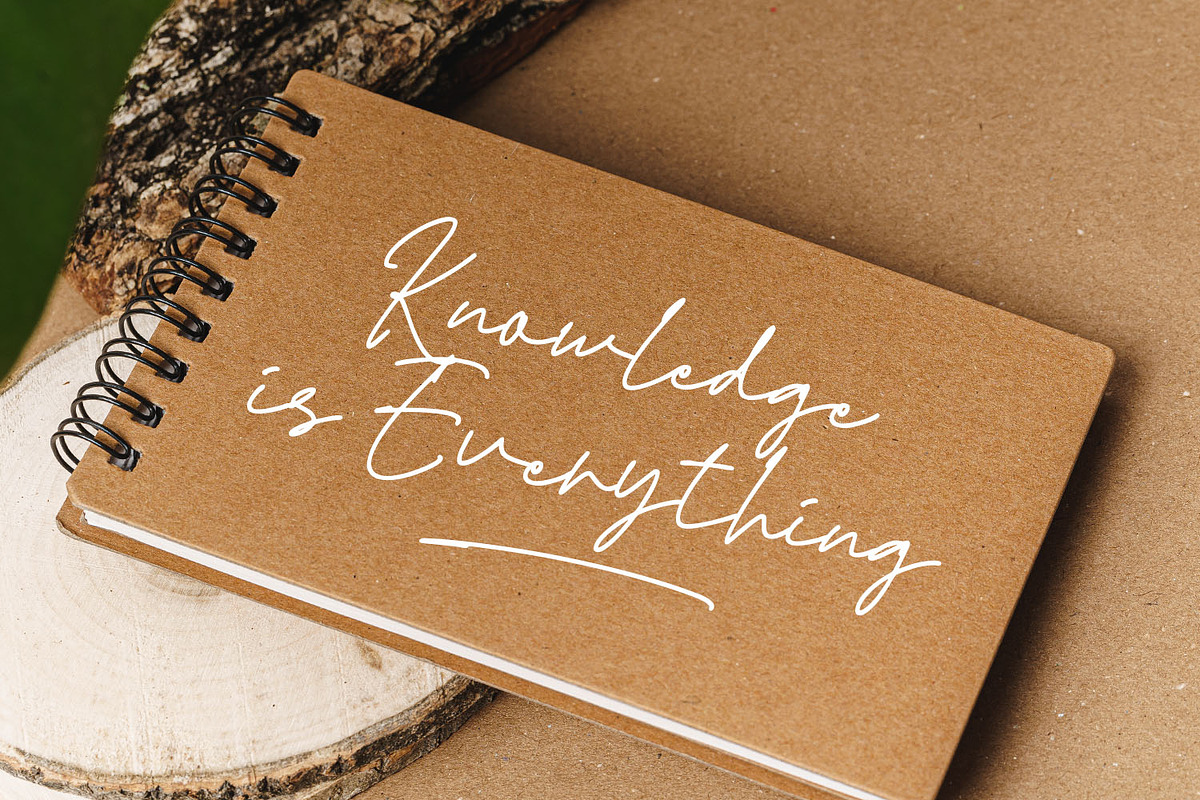 Knowledge
is Everything